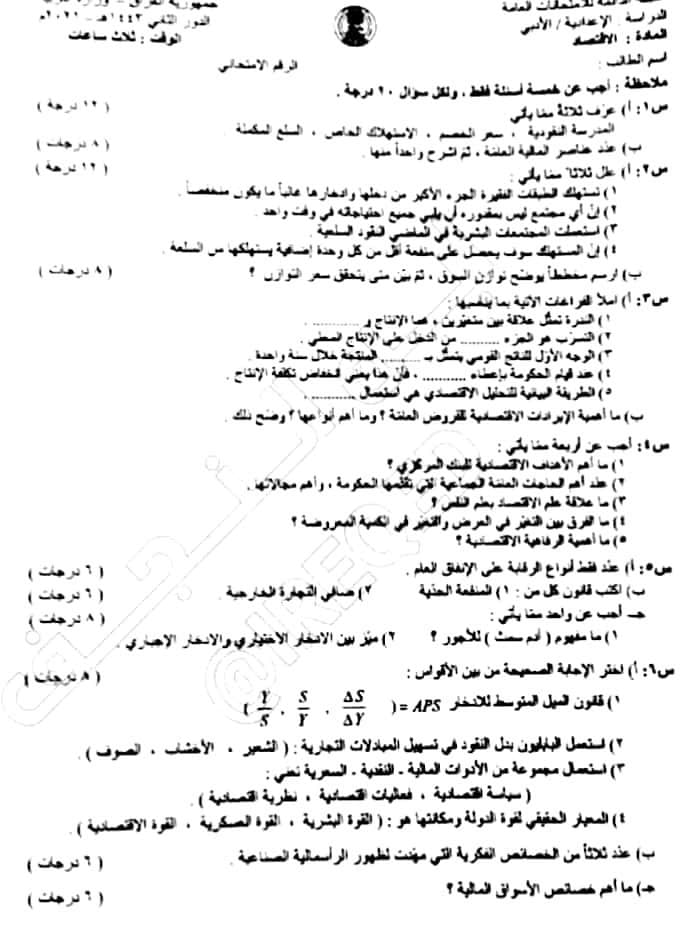 جمهورية العراق - وزارة
الدائمة للامتحانات العامة
الدور الثاني ١٤٤٣هـ - ٢٠٢١م
الدراسة : الإعدادية / الأدبي
الوقت : ثلاث ساعات
المادة : الاقتصاد
اسم الطالب :
الرقم الامتحاني
ملاحظة : أجب عن خمسة أسئلة فقط ، ولكل سؤال ٢٠ درجة .
س١: أ) عرّف ثلاثة ممّا يأتي ( ١٢ درجة )
المدرسة النقودية ، سعر الخصم ، الاستهلاك الخاص ، السلع المكملة
ب) عدّد عناصر المالية العامّة ، ثم اشرح واحداً منها . ( ٨ درجات )
س٢: أ) علل ثلاثاً ممّا يأتي : ( ١٢ درجة )
١) تستهلك الطبقات الفقيرة الجزء الأكبر من دخلها وادخارها غالباً ما يكون منخفضاً .
٢) إنّ أي مجتمع ليس بمقدوره أن يلبي جميع احتياجاته في وقت واحد .
٣) استعملت المجتمعات البشرية في الماضي النقود السلعية .
٤) إنّ المستهلك سوف يحصل على منفعة أقل من كل وحدة إضافية يستهلكها من السلعة .
ب) ارسم مخططاً يوضح توازن السوق ، ثمّ بيّن متى يتحقق سعر التوازن ؟ ( ٨ درجات )
س٣: أ) املأ الفراغات الآتية بما يناسبها :
١) الندرة تمثّل علاقة بين متغيرين ، هما الإنتاج و .............
٢) التسرّب هو الجزء ......... من الدخل على الإنتاج المحلي .
٣) الوجه الأوّل للناتج القومي يتمثّل بـ ......... المنتجة خلال سنة واحدة .
٤) عند قيام الحكومة بإعطاء .......... ، فأنّ هذا يعني انخفاض تكلفة الإنتاج .
٥) الطريقة البيانية للتحليل الاقتصادي هي استعمال ..........
ب) ما أهمية الإيرادات الاقتصادية للقروض العامّة ؟ وما أهم أنواعها ؟ وضح ذلك .
س٤: أجب عن أربعة ممّا يأتي :
١) ما أهم الأهداف الاقتصادية للبنك المركزي ؟
٢) عدّد أهم الحاجات العامّة الجماعية التي تقدّمها الحكومة ، وأهم مجالاتها .
٣) ما علاقة علم الاقتصاد بعلم النفس ؟
٤) ما الفرق بين التغيّر في العرض والتغيّر في الكمية المعروضة ؟
٥) ما أهمية الرفاهية الاقتصادية ؟
س٥: أ) عدّد فقط أنواع الرقابة على الإنفاق العام . ( ٦ درجات )
ب) اكتب قانون كل من : ١) المنفعة الحدّية ٢) صافي التجارة الخارجية . ( ٦ درجات )
جـ- أجب عن واحد ممّا يأتي : ( ٨ درجات )
١) ما مفهوم ( آدم سمث ) للأجور ؟ ٢) ميّز بين الادخار الاختياري والادخار الإجباري .
س٦: أ) اختر الإجابة الصحيحة من بين الأقواس : ( ٨ درجات )
١) قانون الميل المتوسط للادخار APS = ( ΔS/ΔY ، S/Y ، Y/S )
٢) استعمل البابليون بدل النقود في تسهيل المبادلات التجارية : ( الشعير ، الأخشاب ، الصوف ) .
٣) استعمال مجموعة من الأدوات المالية - النقدية - السعرية تعني :
( سياسة اقتصادية ، فعاليات اقتصادية ، نظرية اقتصادية ) .
٤) المعيار الحقيقي لقوة الدولة ومكانتها هو : ( القوة البشرية ، القوة العسكرية ، القوة الاقتصادية ) .
ب) عدّد ثلاثاً من الخصائص الفكرية التي مهّدت لظهور الرأسمالية الصناعية . ( ٦ درجات )
جـ) ما أهم خصائص الأسواق المالية ؟ ( ٦ درجات )
@IREQ